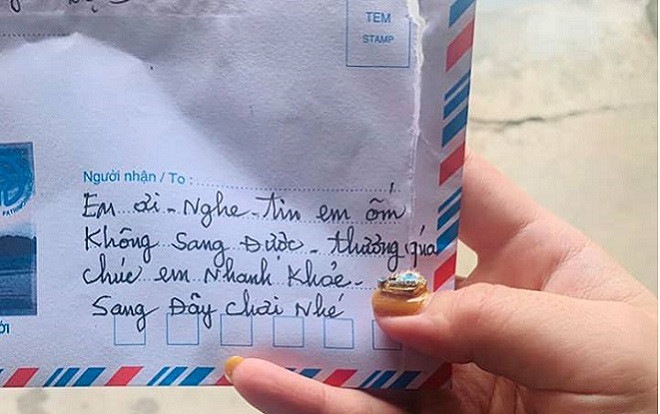 TEM
STAMP
Người nhận / To :
Em ơi - Nghe tin em ốm
Không sang Được - thương quá
chúc em Nhanh Khỏe -
Sang Đây chơi Nhé